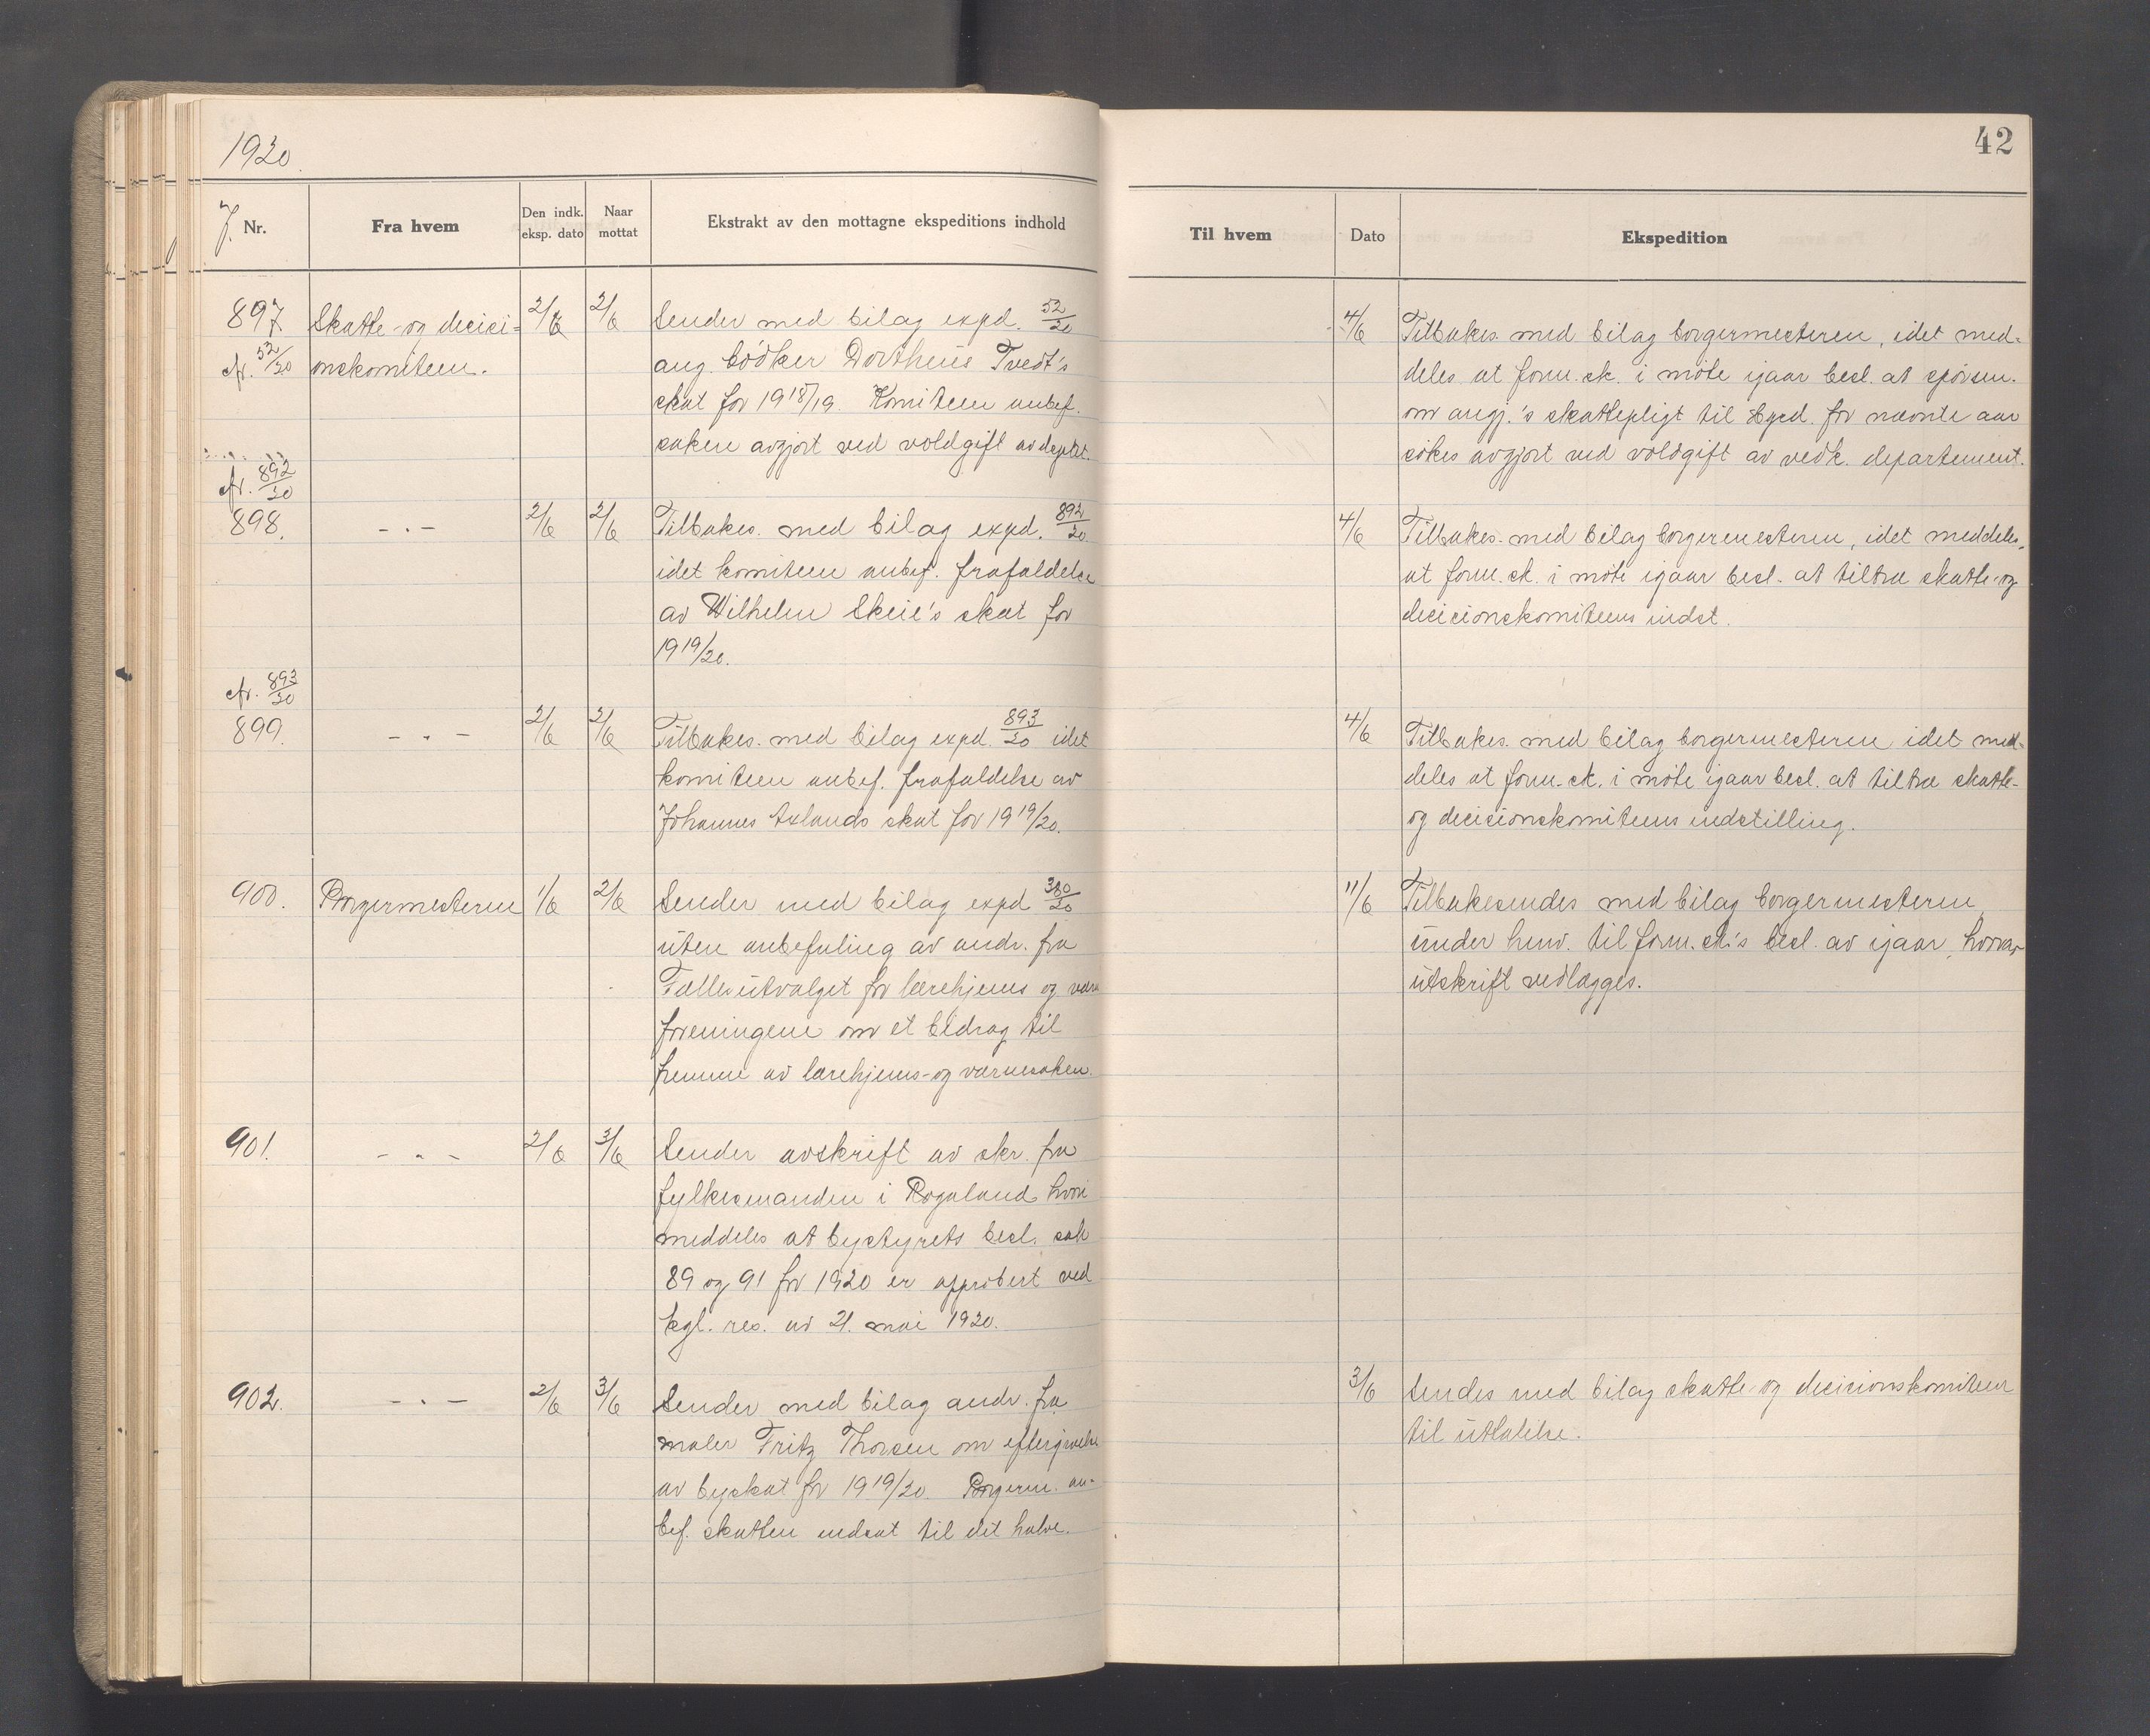 1920.
42
J. Nr.
Fra hvem
Den indk. eksp. dato
Naar mottat
Ekstrakt av den mottagne ekspeditions indhold
Til hvem
Dato
Ekspedition
897. Skatte- og decisi- 2/6 2/6 Sender med bilag expd. 52/20
cfr. 52/20 onskomiteen. ang. bödker Dortheus Tvedt's
skat for 1918/19. Komiteen anbef.
saken avgjort ved voldgift av deptet.
4/6 Tilbakes. med bilag borgermesteren, idet med-
deles at form.sk. i möte igaar besl. at spörsm.
om angj.'s skattepligt til Egrd. for nævnte aar
sökes avgjort ved voldgift av vedk. departement.
cfr. 892/20
898. - " - 2/6 2/6 Tilbakes. med bilag expd. 892/20
idet komiteen anbef. frafaldelse
av Wilhelm Skeie's skat for
1919/20.
4/6 Tilbakes. med bilag borgermesteren, idet meddeles,
at form.sk. i möte igaar besl. at tiltræ skatte- og
decisionskomiteens indst.
cfr. 893/20
899. - " - 2/6 2/6 Tilbakes. med bilag expd. 893/20 idet
komiteen anbef. frafaldelse av
Johannes skat for 1919/20.
4/6 Tilbakes. med bilag borgermesteren idet med-
deles at form.sk. i möte igaar besl. at tiltræ skatte-
og decisionskomiteens indstilling.
900. Borgermesteren 1/6 2/6 Sender med bilag expd 380/20
uten anbefaling av andr. fra
Fællesutvalget for lærehjems og værne
foreningene om et bidrag til
fremme av lærehjems- og værnesaken.
11/6 Tilbakesendes med bilag borgermesteren
under henv. til form.sk's besl. av igaar, hvorav
utskrift vedlægges.
901. - " - 2/6 3/6 Sender avskrift av skr. fra
fylkesmanden i Rogaland hvori
meddeles at bystyrets besl. sak
89 og 91 for 1920 er approbert ved
kgl. res. av 21. mai 1920.
902. - " - 2/6 3/6 Sender med bilag andr. fra
maler Fritz Thorsen om eftergivelse
av byskat for 1919/20. Borgerm. an-
bef. skatten nedsat til det halve.
3/6 Sendes med bilag skatte- og decisionskomiteen
til uttalelse.